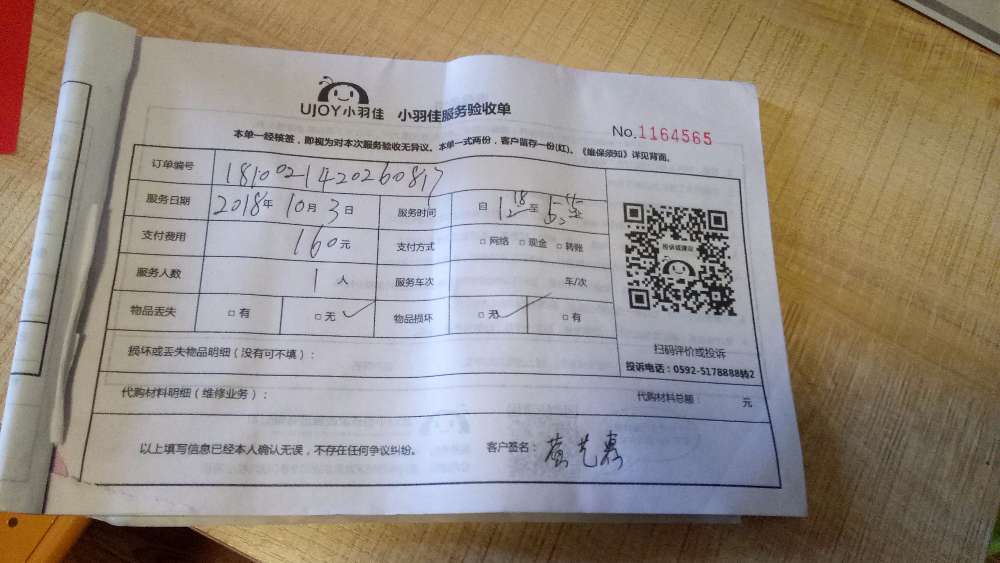 UJOY小羽佳 小羽佳服务验收单
No.1164565
本单一经核签，即视为对本次服务验收无异议。本单一式两份，客户留存一份(红)。《维保须知》详见背面。
订单编号 1810021420260817
服务日期 2018年10月3日 服务时间 自 至
支付费用 160元 支付方式 □网络 □现金 □转账
服务人数 1人 服务车次 车/次
物品丢失 □有 □无✓ 物品损坏 □无✓ □有
投诉或建议
扫码评价或投诉
投诉电话：0592-5178888转2
损坏或丢失物品明细（没有可不填）：
代购材料明细（维修业务）： 代购材料总额： 元
以上填写信息已经本人确认无误，不存在任何争议纠纷。 客户签名：